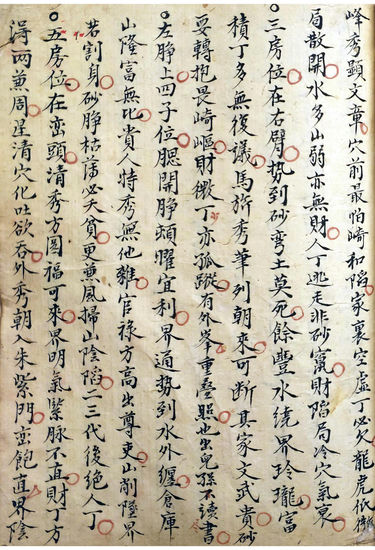 峰秀顯文章穴前最怕崎和陷家裏空虛丁必欠龍虎低
局散開水多山弱亦無財人丁逃走非砂寓財陷局冷穴氣衰
三房位在右臂勢到砂彎土莫死餘豐水繞界玲瓏富
積丁多無復議馬旂秀筆列朝來可斷其家文武貴砂
要轉抱畏崎嶇財微丁亦孤蹤有外峯重疊照也出兒孫不讀書
左脝上四子位腮開脝煩耀宜利界通勢到水外纏倉庫
山隆富無比貴人特秀無他雜官祿方高出尊吏山削墜界
若割身砂脝枯蒲必夭貧更兼風掃山陰陷二三代後絕人丁
五房位在巒頭清秀方圓福可來界明氣緊脉不直財丁方
得兩兼周星清穴化吐欲吞外秀朝入朱紫門巒飽直界陰